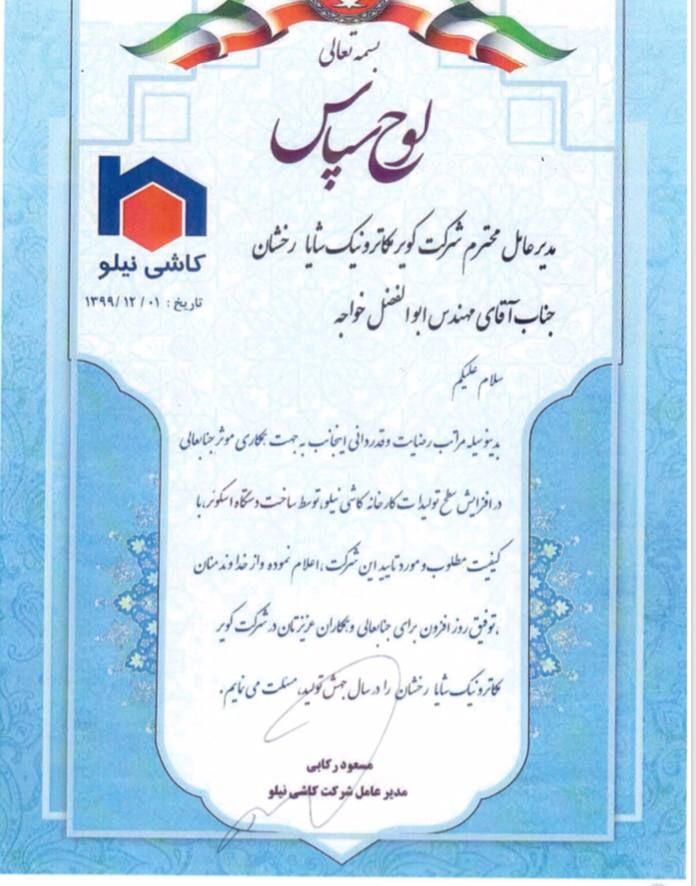 بسمه تعالی
لوح سپاس
کاشی نیلو
تاریخ : ۱۳۹۹/۱۲/۰۱
مدیرعامل محترم شرکت کویر مکاترونیک شایا رخشان
جناب آقای مهندس ابوالفضل خواجه
سلام علیکم
بدینوسیله مراتب رضایت و قدردانی اینجانب به جهت همکاری موثر جنابعالی
در افزایش سطح تولیدات کارخانه کاشی نیلو، توسط ساخت دستگاه اسکوئر، با
کیفیت مطلوب و مورد تایید این شرکت، اعلام نموده و از خداوند منان
،توفیق روز افزون برای جنابعالی و همکاران عزیزتان در شرکت کویر
مکاترونیک شایا رخشان را در سال جهش تولید، مسئلت می نمایم.
مسعود رکابی
مدیر عامل شرکت کاشی نیلو